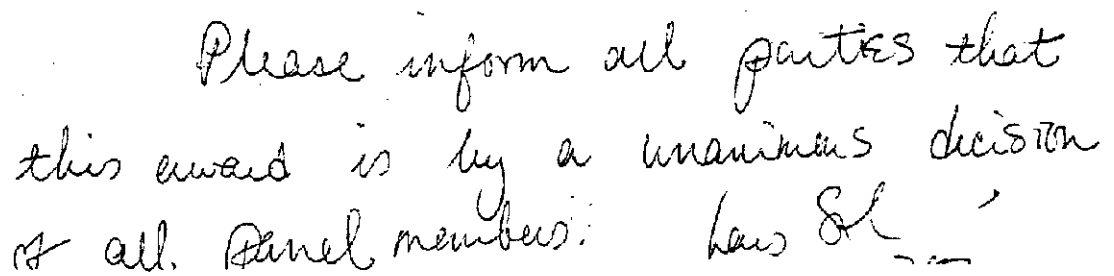 Please inform all parties that
this award is by a unanimous decision
of all panel members.